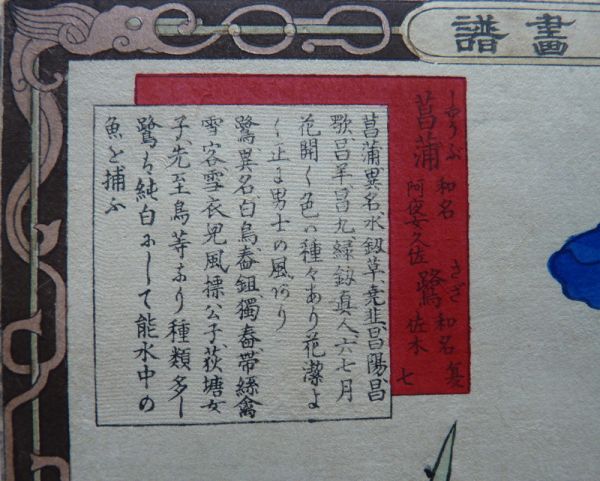 畫譜
しやうぶ
菖蒲 和名 阿夜女久佐
さぎ
鷺 和名 佐木
七
菖蒲異名水劔草、堯韭、昌陽、昌
歜、昌羊、昌九、緑劔真人六七月
花開く色ハ種々あり花潔よ
く正に男士の風あり
鷺異名白鳥、舂鉏、獨舂、帶絲禽
雪客、雪衣児、風標公子、荻塘女
子、先至鳥等なり種類多し
鷺ハ純白にして能水中の
魚を捕ふ